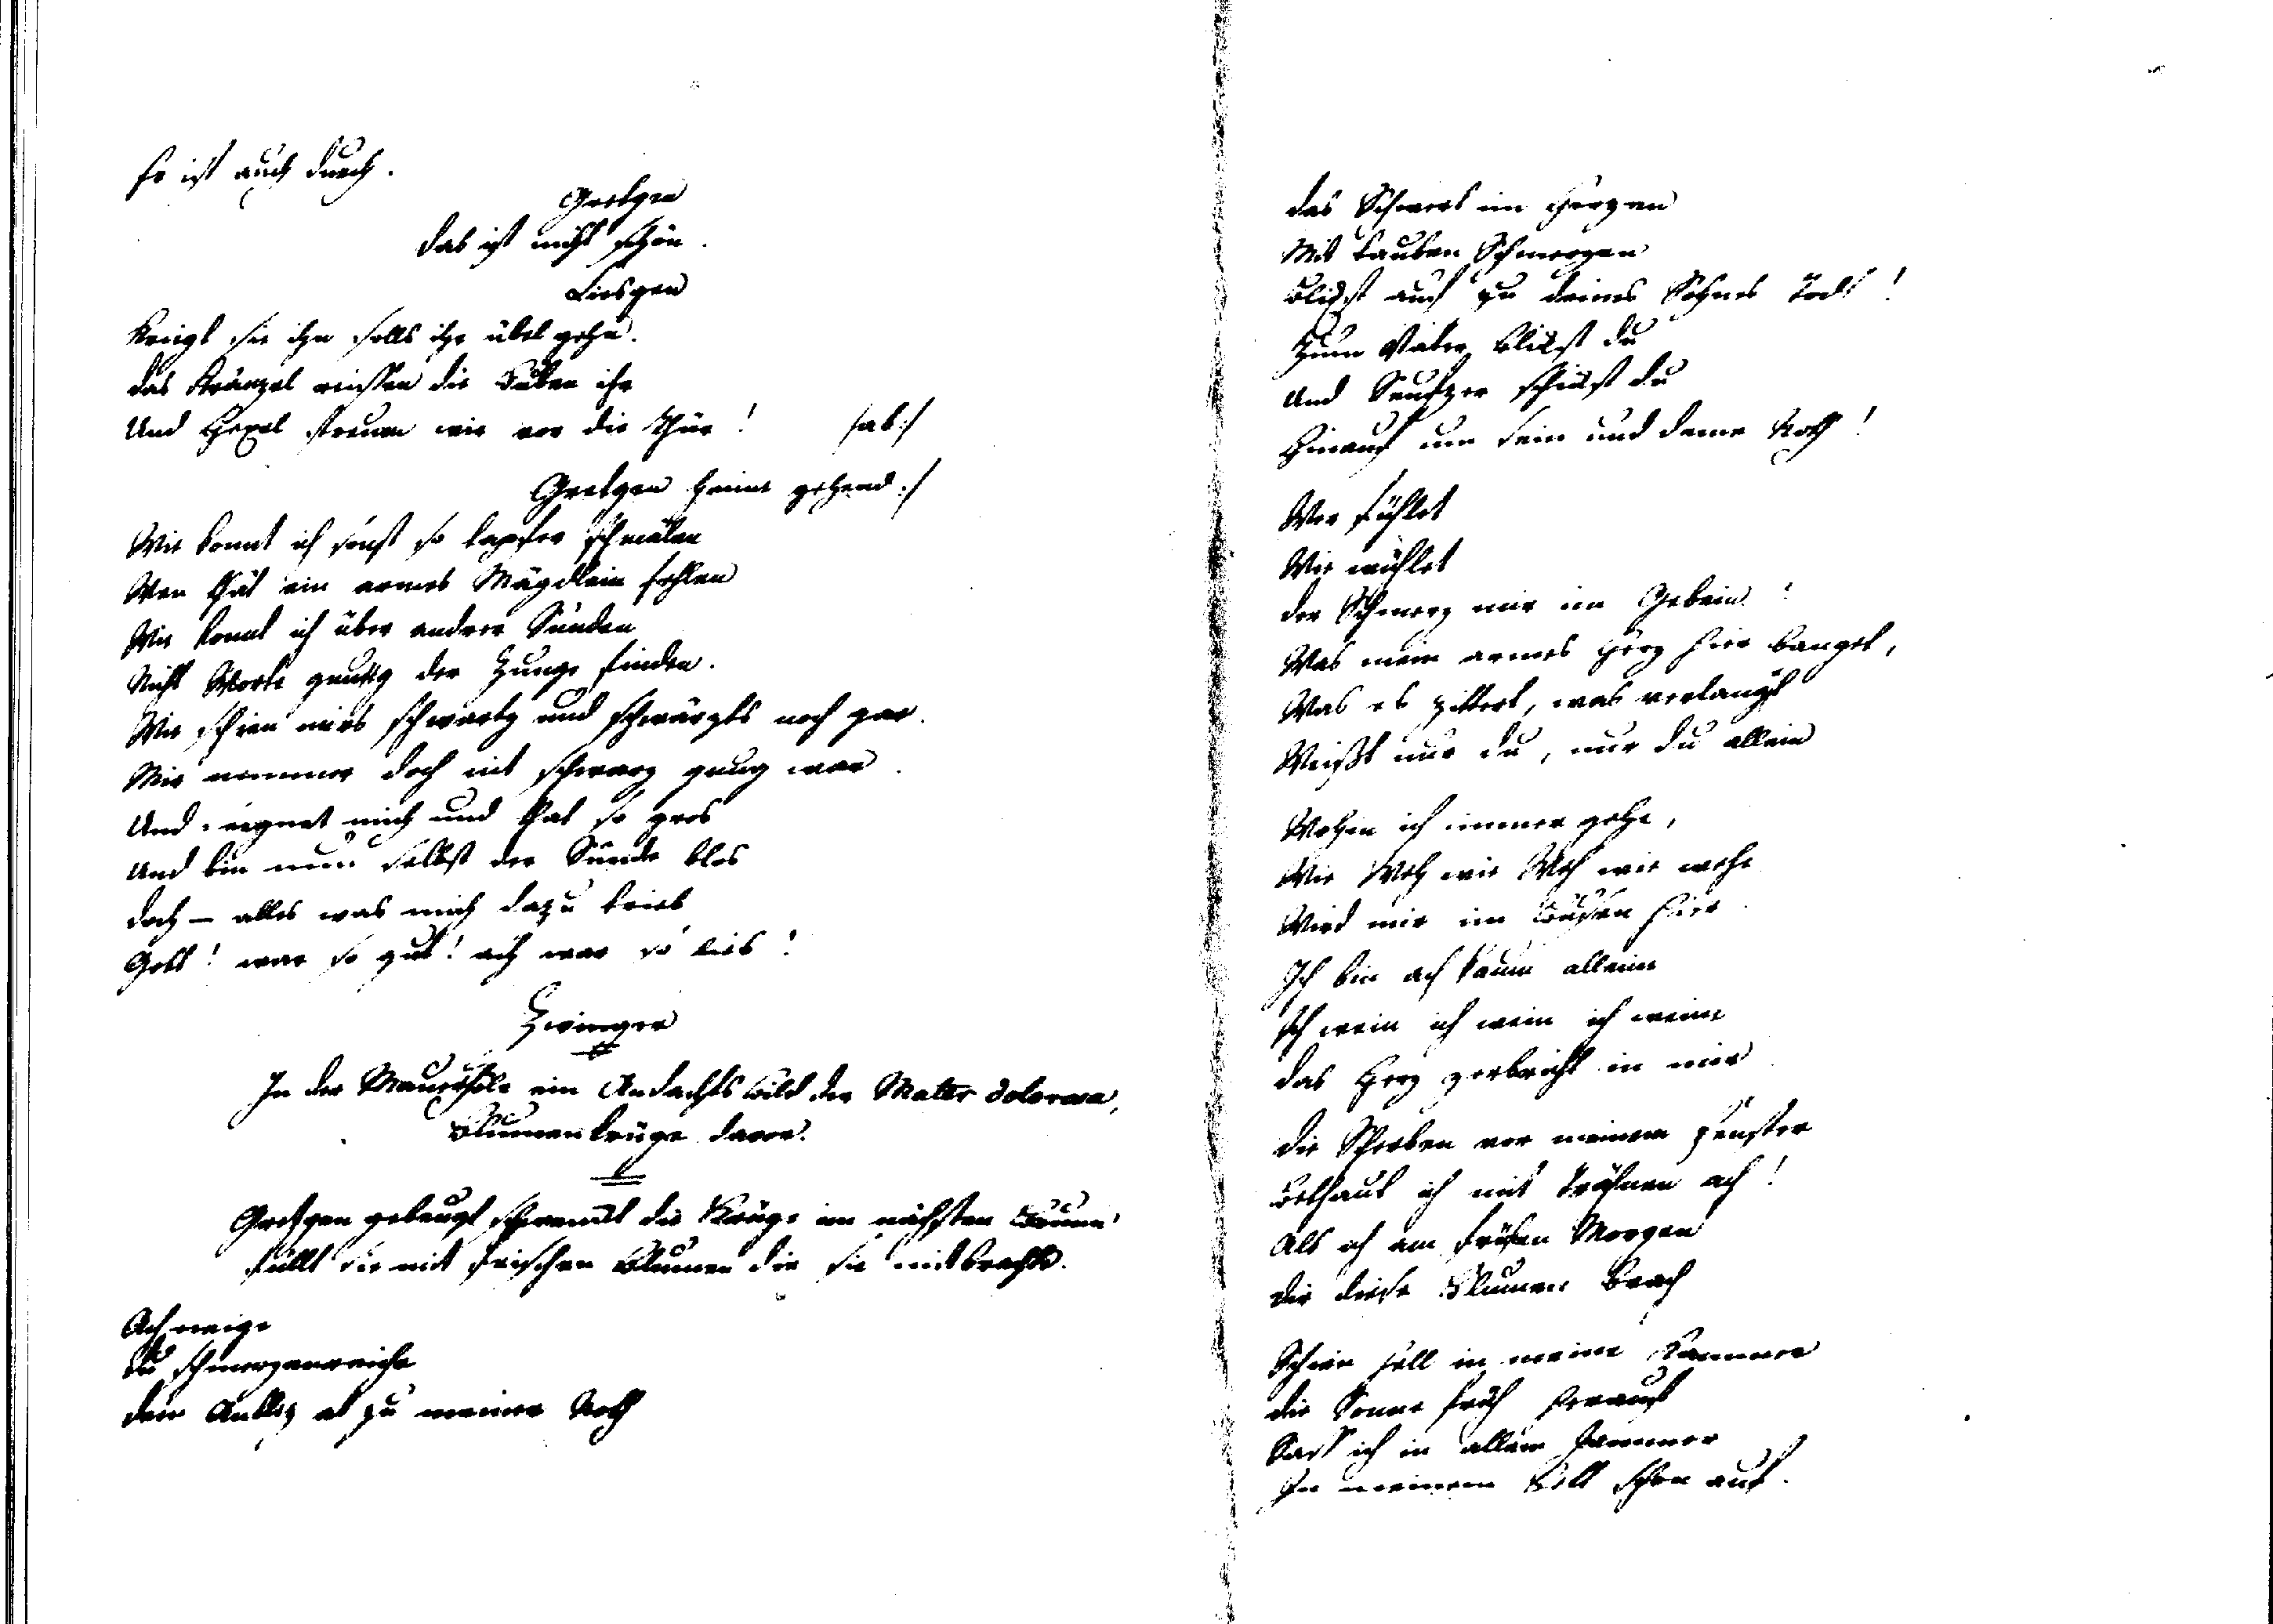 Er ist auch durch.
Gretgen
Das ist nicht schön.
Liesgen
Kriegt sie ihn solls ihr übel gehn.
Das Kränzel reissen die Buben ihr
Und Hexel streuen wir vor die Thür! /ab:/
Gretgen heime gehend:/
Wie konnt ich sonst so tapfer schmälen
Wen thät ein armes Mägdlein fehlen
Wie konnt ich über andrer Sünden
Nicht Worte gnung der Zunge finden.
Wie schien mirs schwartz und schwärzts noch gar.
Mir nimmer doch nit schwarz gnug war.
Und seegnet mich und that so gros
Und bin nun selbst der Sünde blos
Doch — alles was mich dazu trieb
Gott! war so gut! ach war so lieb!
Zwinger
In der Mauerhöle ein Andachts bild der Mater dolorosa,
Blumenkrüge davor.
Gretgen gebeugt schwenckt die Krüge im nächsten Brunn
füllt sie mit frischen Blumen die sie mitbrachte.
Ach neige
Du schmerzenreiche
Dein Antliz ab zu meiner Noth
Das Schwert im Herzen
Mit tauben Schmerzen
Blickst auf zu deines Sohnes Todt!
Zum Vater blickst du
Und Seufzer schickst du
Hinauf um sein und deine Noth!
Wer fühlet
Wie wühlet
Der Schmerz mir im Gebein!
Was mein armes Herz hier banget,
Was es zittert, was verlanget
Weißt nur du, nur du allein
Wohin ich immer gehe,
Wie Weh wie Weh wie wehe
Wird mir im Busen hier.
Ich bin ach kaum alleine
Ich wein ich wein ich weine
Das Herz zerbricht in mir
Die Scherben vor meinem Fenster
Bethaut ich mit Trähnen ach!
Als ich am frühen Morgen
Dir diese Blumen brach
Schien hell in meine Kammer
Die Sonne früh herauf
Sass ich in allem Jammer
In meinem Bett schon auf.